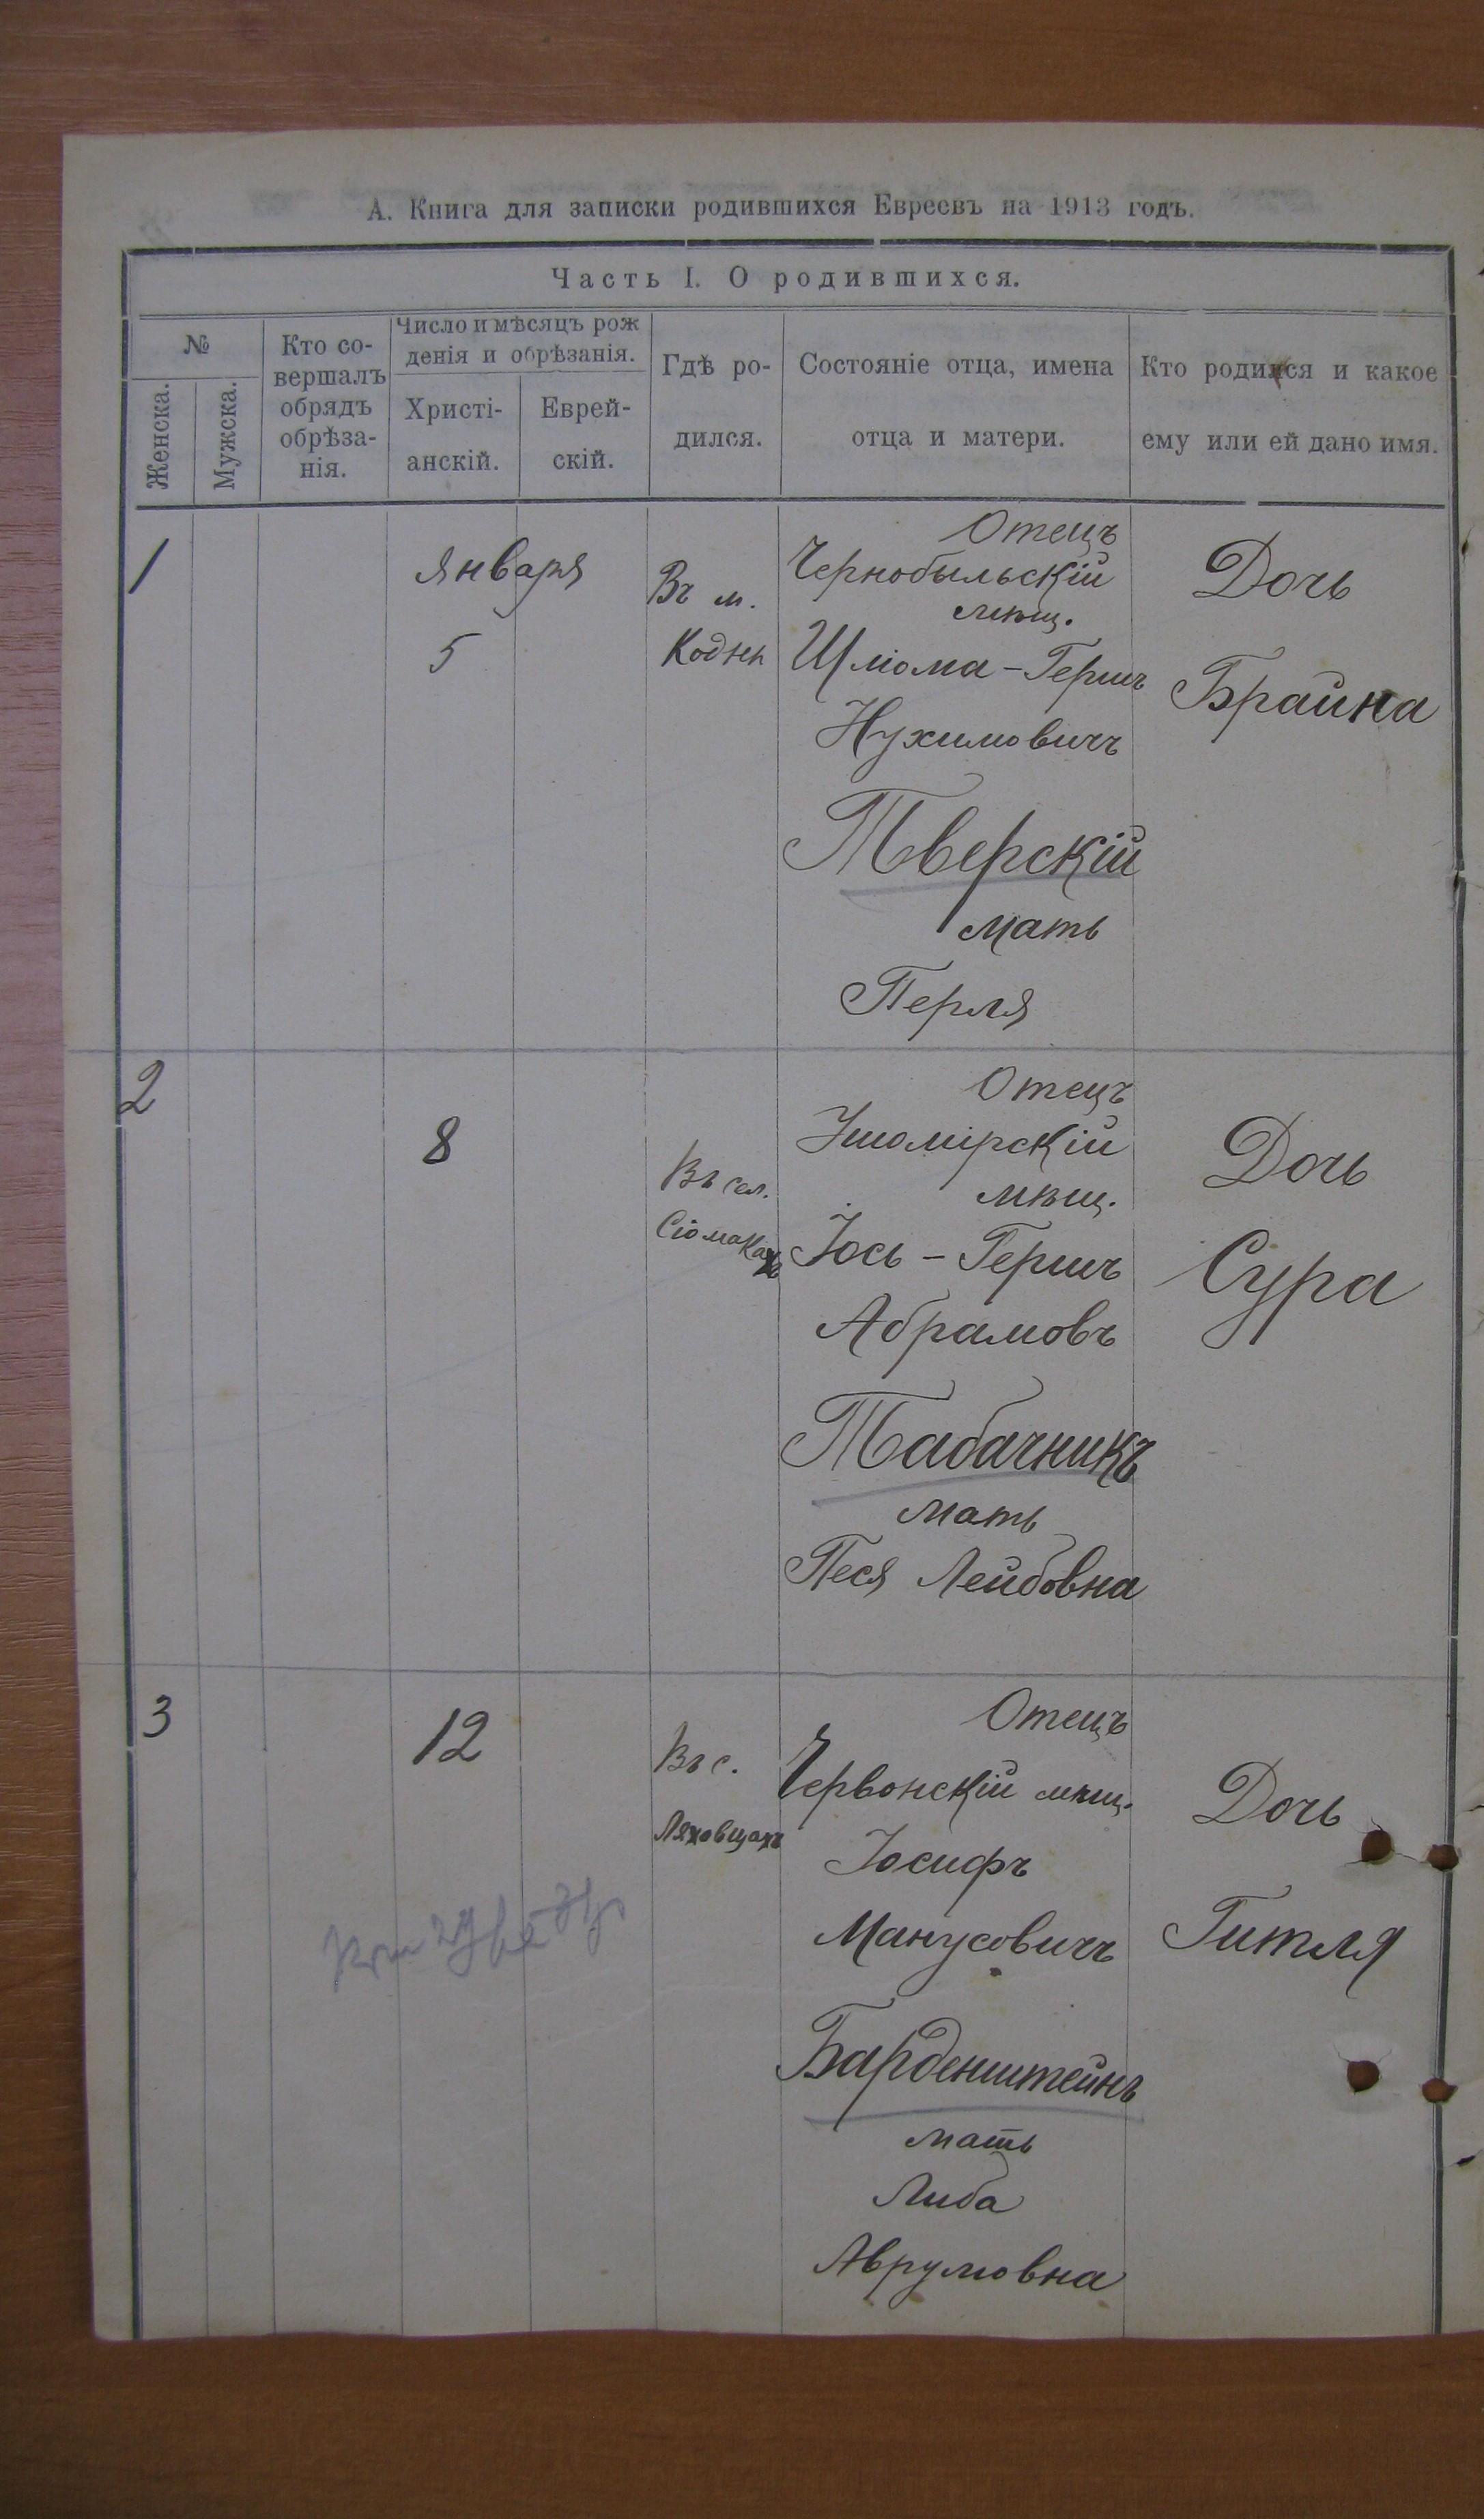 А. Книга для записки родившихся Евреевъ на 1913 годъ.
Часть I. О родившихся.
№
Женска.
Мужска.
Кто со-
вершалъ
обрядъ
обрѣза-
нія.
Число и мѣсяцъ рож
денія и обрѣзанія.
Христі-
анскій.
Еврей-
скій.
Гдѣ ро-
дился.
Состояніе отца, имена
отца и матери.
Кто родился и какое
ему или ей дано имя.
1
Января
5
Въ м.
Коднѣ
Отецъ
Чернобыльскій
мѣщ.
Шлома-Гершъ
Нухимовичъ
Тверскій
мать
Перля
Дочь
Брайна
2
8
Въ сел.
Сіомаках
Отецъ
мѣщ.
Іось-Гершъ
Абрамовъ
Табачникъ
мать
Песя Лейбовна
Дочь
Сура
3
12
Въ с.
Ляховцахъ
Отецъ
Червонскій мѣщ.
Іосифъ
Манусовичъ
Барденштейнъ
мать
Либа
Аврумовна
Дочь
Гитля